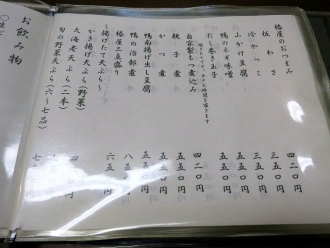 椿屋のおつまみ
板わさ 四二〇円
冷やっこ 三五〇円
山かけ豆腐 四二〇円
鴨のネギ味噌
だし巻き玉子 五五〇円
自家製もつ煮込み 五五〇円
親子煮 四二〇円
かつ煮 五五〇円
鴨南揚げ出し豆腐 五五〇円
鴨の治部煮
椿屋三点盛り 八五〇円
〜揚げたて天ぷら〜
かき揚げ天ぷら(野菜) 六五〇円
大海老天ぷら(二本)
旬の野菜天ぷら(六〜七品)
お飲み物